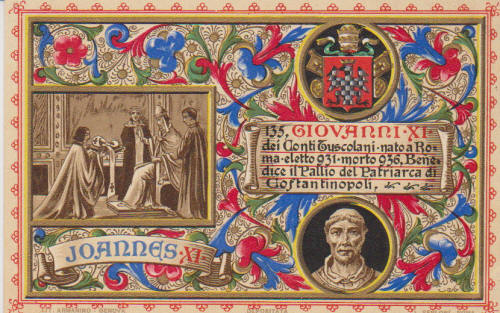 135. GIOVANNI·XI·
dei Conti Tuscolani·nato a Ro=
ma·eletto 931·morto 936, Bene=
dice il Pallio del Patriarca di
Costantinopoli,
JOANNES·XI·
LIT. ARMANINO GENOVA